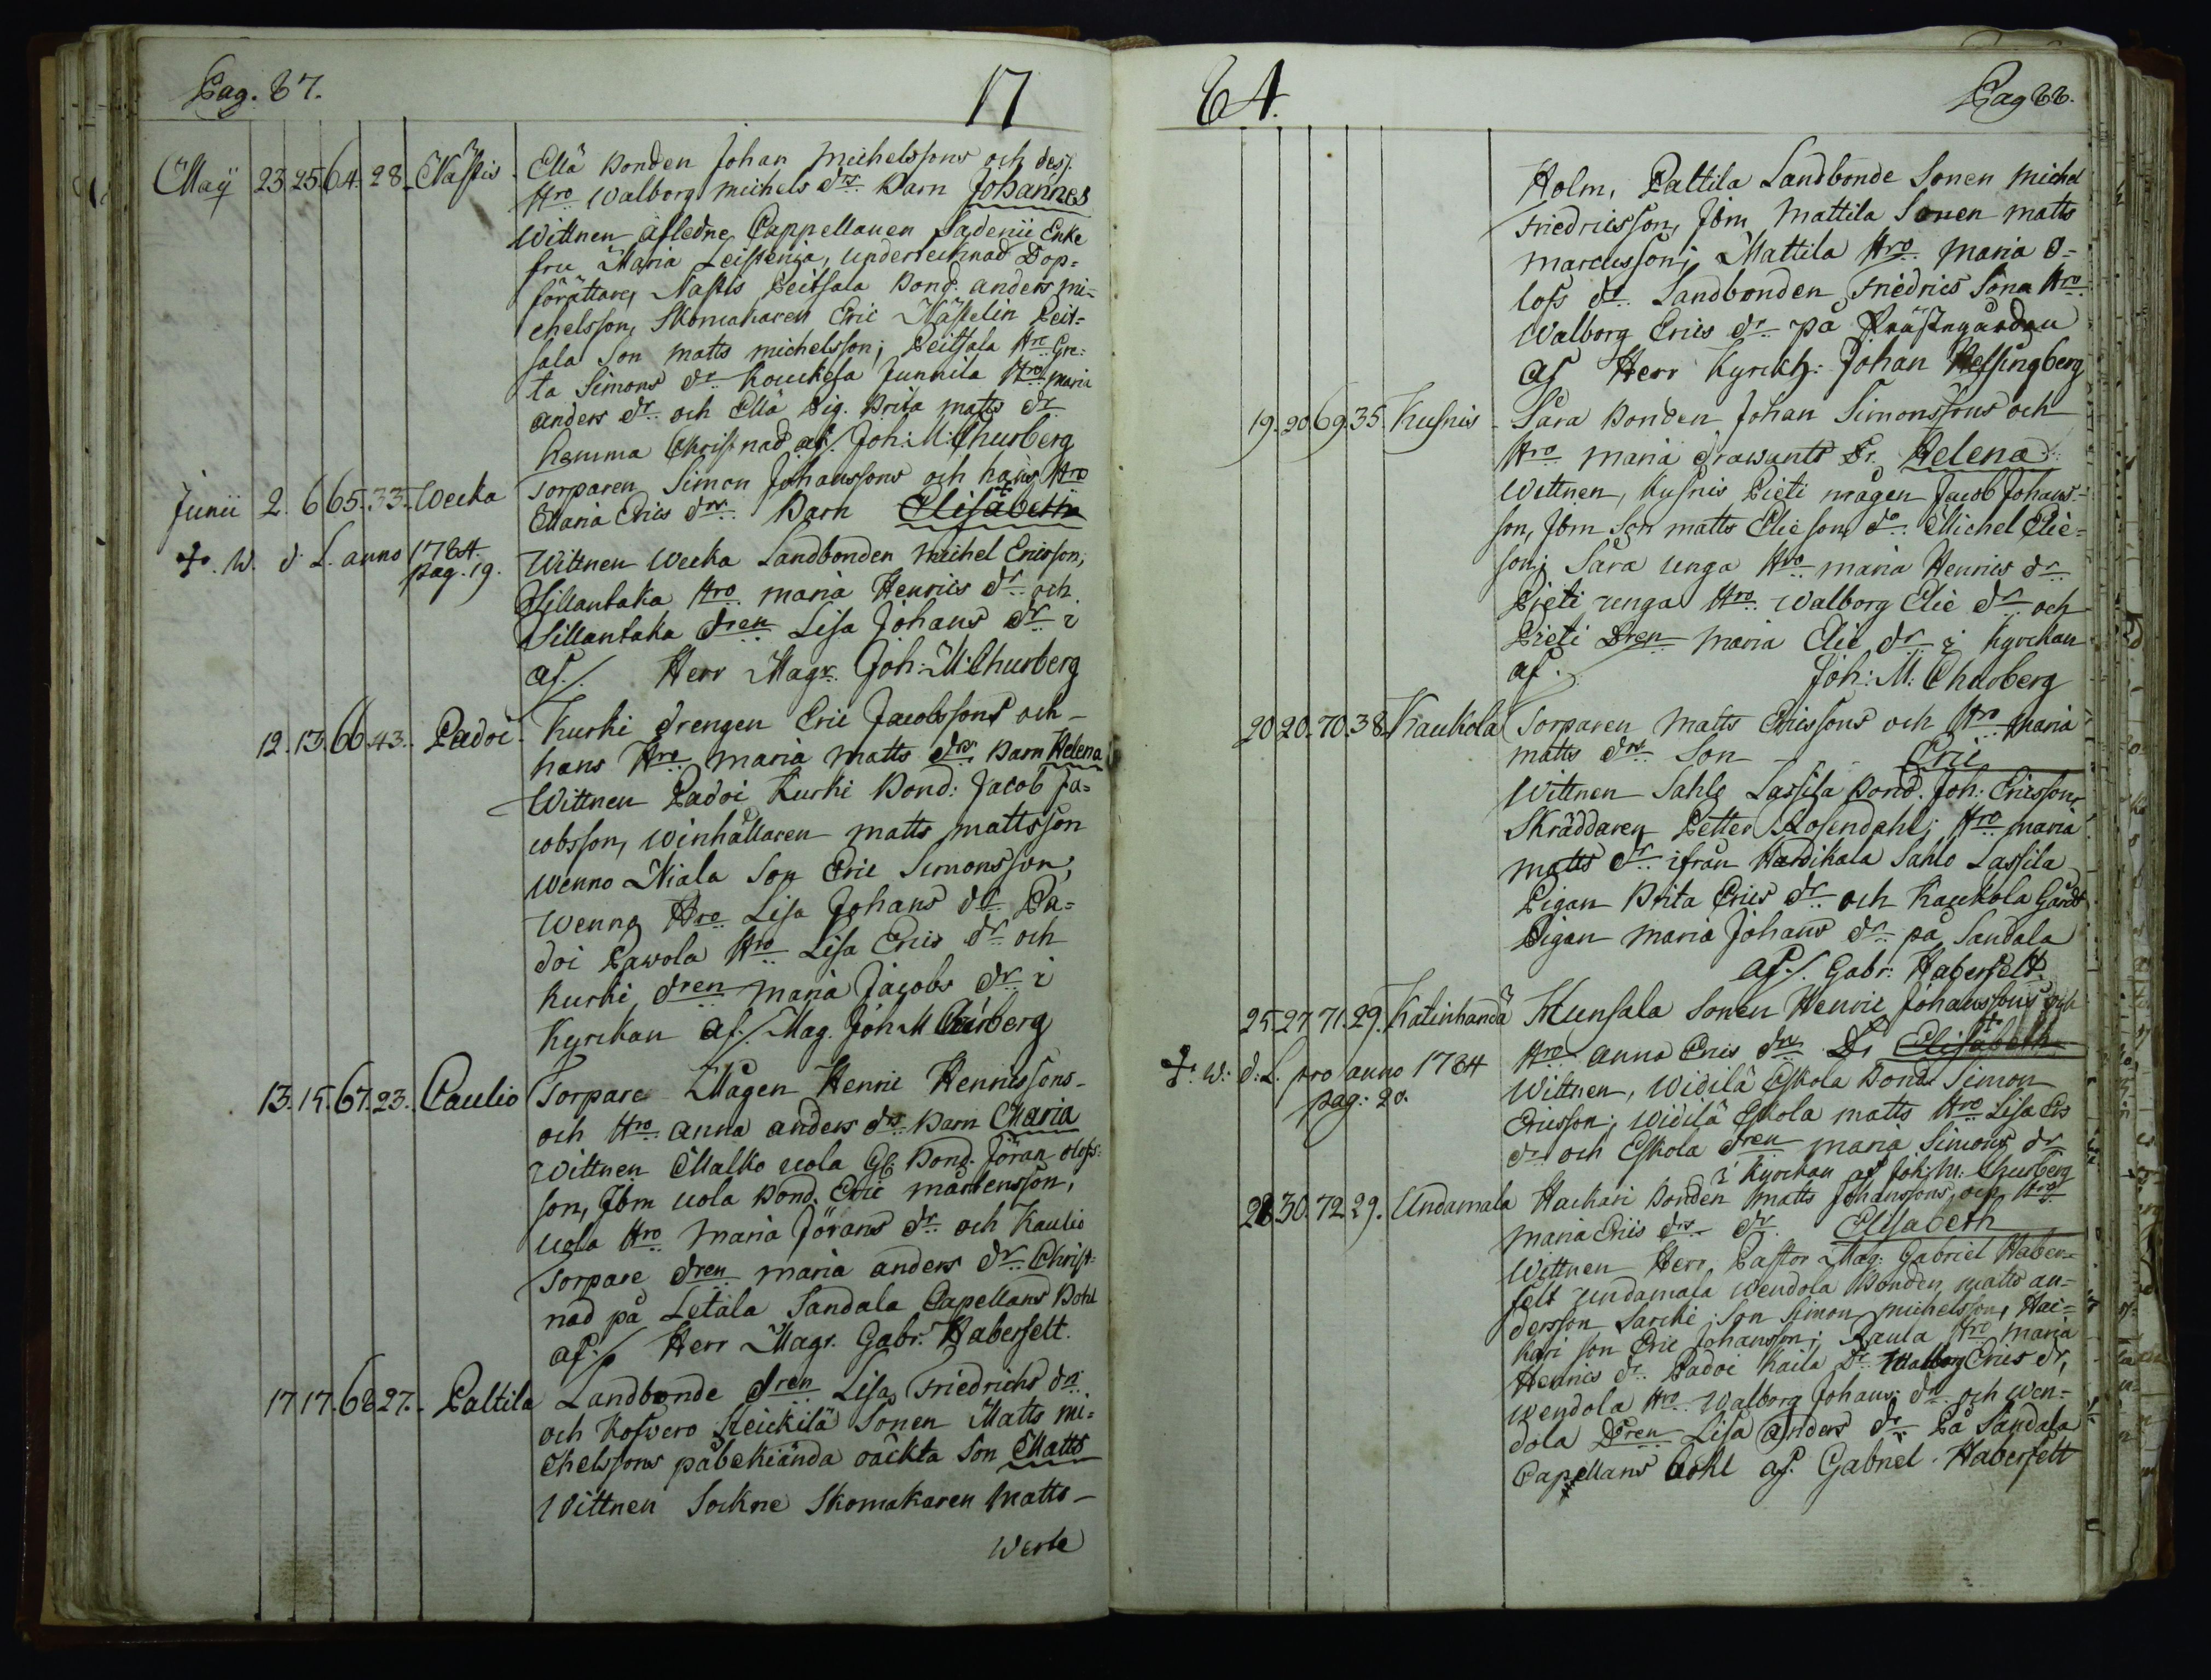 Pag. 87.
17
Maij 23. 25. 64. 28. Nästis. Ellä Bonden Johan Michelssons och dess
Hro Walborg Michels drs Barn Johannes
Wittnen afledne Cappellanen Sadenii Enke
fru Maria Leistenia, undertecknad Dop=
förättare, Nästis Peitsala Bond. anders mi=
chelsson, Skomakaren Eric Kästelin Peit=
sala Son matts michelsson; Peitsala Hro Gre=
ta Simons dr Koukela Junnila Hro Maria
anders dr och Ellä Pig. Brita matts dr
hemma Christnad af/. Joh: M: Churberg
Junii 2. 6 65. 33. Wecka Torparen Simon Johanssons och hans Hro
Maria Erics drs Barn Elisabetha
+. W. d. L. anno 1784. pag. 19.
Wittnen Wecka Landbonden Michel Ericsson;
Sillantaka Hro maria Henrics dr och
Sillantaka dren Lisa Johans dr i
af./. Herr Magr. Joh: M: Churberg
12. 13. 66. 43. Padoi. Kurki drengen Eric Jacobssons och
hans Hro maria matts drs Barn Helena
Wittnen Padoi Kurki Bond: Jacob Ja=
cobsson, winhållaren matts mattsson
Wenno Niala Son Eric Simonsson;
Wenno Hro Lisa Johans dr Pa=
doi Pawola Hro Lisa Erics dr och
Kurki dren Maria Jacobs dr i
Kyrckan af/. Mag. Joh M Churberg
13. 15. 67. 23. Caulio Torpare Mågen Henric Henricssons
och Hro anna anders drs Barn Maria
Wittnen Malko uola Gl. Bond. Jöran Olofs=
son, Jbm uola Bond. Eric mårtensson,
uola Hro Maria Jörans dr och Kaulio
Torpare dren maria anders dr Christ=
nad på Letala Sandala Capellans Bohl
af./. Herr Magr. Gabr. Haberfelt.
17 17. 68 27. Paltila Landbonde dren Lisa Friedrichs drs
och Kosvero Keickilä Sonen Matts mi=
chelssons påbekiända oäckta Son Matts
Wittnen Sockne Skomakaren Matts
Werle
84.
Pag 88.
Holm, Paltila Landbonde Sonen michel
Friedricsson, Jbm Mattila Sonen matts
marcusson; Mattila Hro Maria O=
lofs dr Landbonden Friedrics Sona Hro
Walborg Erics dr på Prästegården
af Herr Kyrckh: Johan Helsingberg
19. 20. 69. 35. Kusnis Sara Bonden Johan Simonssons och
Hro Maria drawants Dr. Helena
Wittnen, Kusnis Pieti mågen Jacob Johans=
son, Jbm Son matts Elie son do Michel Elie=
son; Sara unga Hro maria Henrics dr
Pieti unga Hro Walborg Elie dr och
Pieti Dren Maria Elie dr i Kyrckan
af. Joh: M: Churberg
20 20. 70. 38. Kaukola Torparen matts Ericssons och Hro Maria
matts drs Son Eric
Wittnen Sahlo Lassila Bond. Joh: Ericsson,
Skräddaren Petter Rosendahl; Hro Maria
matts dr ifrån Hardikala Sahlo Lassila
Pigan Brita Erics dr och Kaukola Gårds
Pigan Maria Johans dr på Sandala
af./. Gabr: Haberfelt.
25. 27. 71. 29. Katinhändä Hunsala Sonen Henric Johanssons och
Hro anna Erics drs Dr Elisabeth
+. W. d. L. pro anno 1784 pag: 20.
Wittnen, Widilä Eskola Bond. Simon
Ericsson; Widilä Eskola matts Hro Lisa Ers
dr och Eskola dren maria Simons dr
i Kyrckan af Joh: M: Churberg
28 30. 72. 29. Undamala Hackari Bonden matts Johanssons och Hro
Maria Erics drs dr Elisabeth
Wittnen Herr Pastor Mag: Gabriel Haber=
felt Undamala Wendola Bonden matts an=
dersson Sarcki; Son Simon michelsson, Hac=
kari son Eric Johansson; Raula Hro Maria
Henrics dr Padoi Kaila Dr Walborg Erics dr,
Wendola Hro Walborg Johans: dr och Wen=
dola Dren Lisa Anders dr På Sandala
Capellans Bohl af. Gabriel Haberfelt